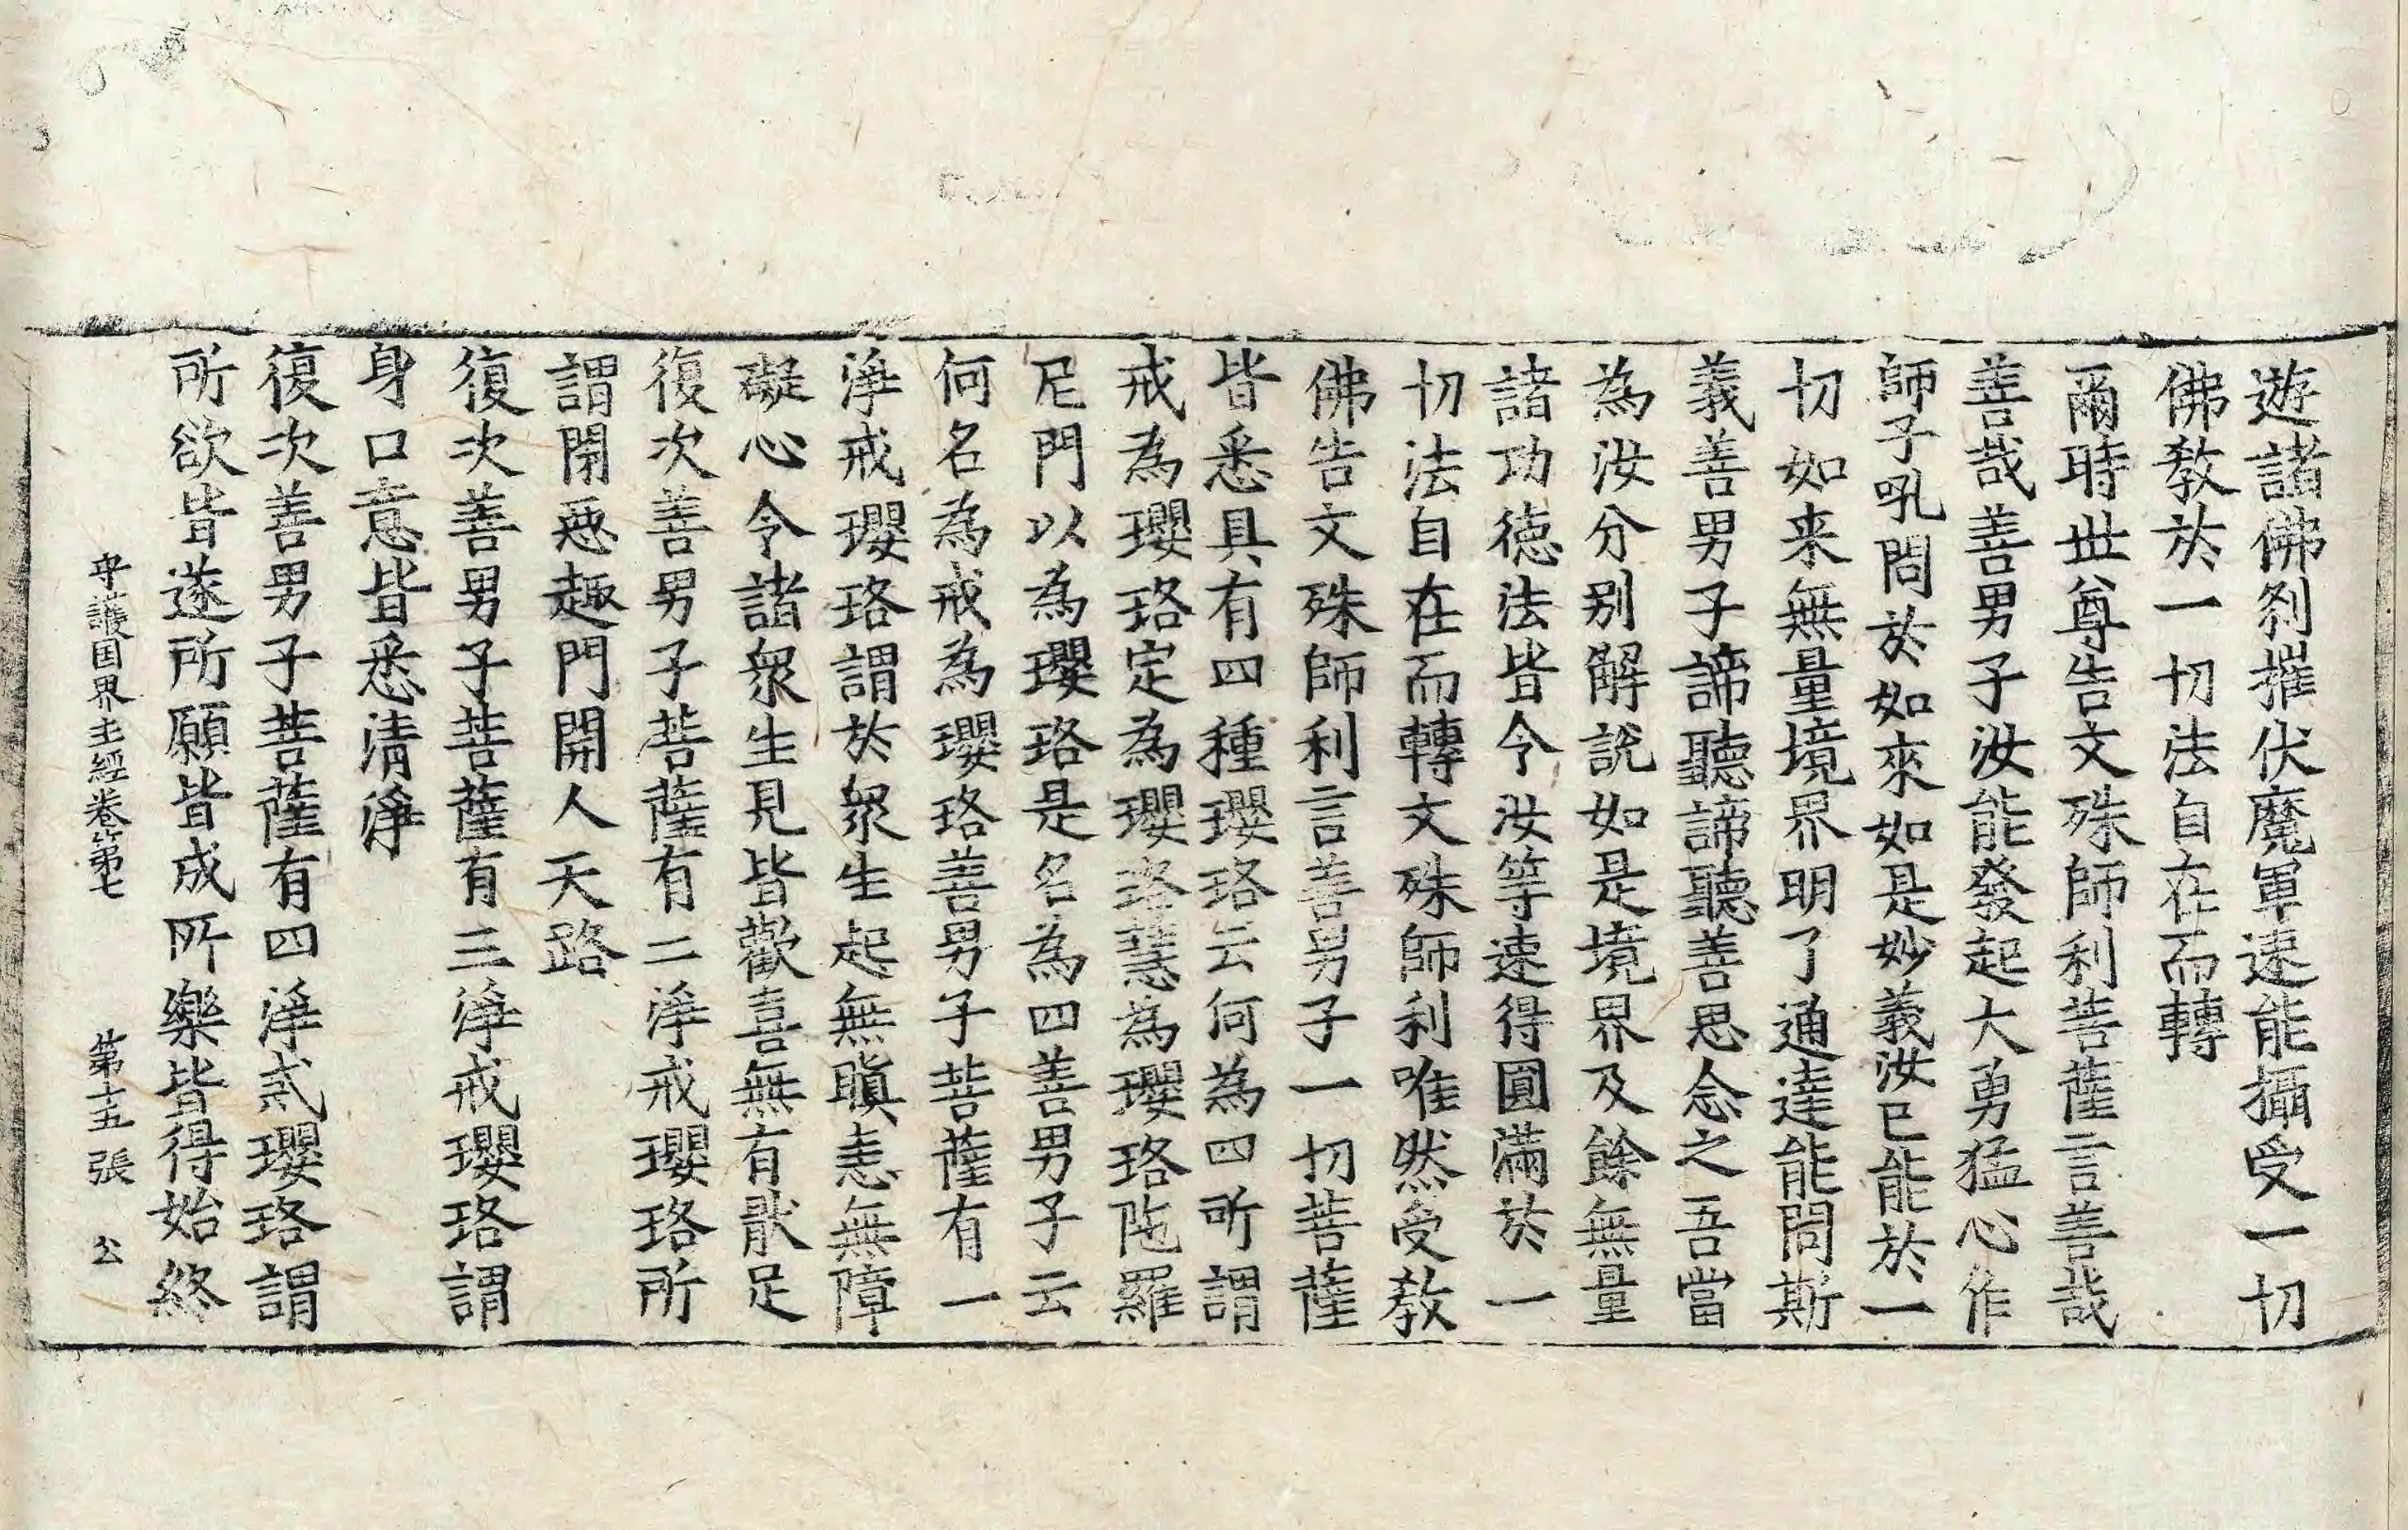 遊諸佛刹摧伏魔軍速能攝受一切
佛教於一切法自在而轉
爾時世尊告文殊師利菩薩言善哉
善哉善男子汝能發起大勇猛心作
師子吼問於如來如是妙義汝已能於一
切如来無量境界明了通達能問斯
義善男子諦聽諦聽善思念之吾當
為汝分别解說如是境界及餘無量
諸功德法皆令汝等速得圓滿於一
切法自在而轉文殊師利唯然受教
佛告文殊師利言善男子一切菩薩
皆悉具有四種瓔珞云何為四所謂
戒為瓔珞定為瓔珞慧為瓔珞陁羅
尼門以為瓔珞是名為四善男子云
何名為戒為瓔珞善男子菩薩有一
淨戒瓔珞謂於衆生起無瞋恚無障
礙心令諸衆生見皆歡喜無有猒足
復次善男子菩薩有二淨戒瓔珞所
謂閉惡趣門開人天路
復次善男子菩薩有三淨戒瓔珞謂
身口意皆悉清淨
復次善男子菩薩有四淨戒瓔珞謂
所欲皆遂所願皆成所樂皆得始終
守護国界主經卷第七 第十五張 公